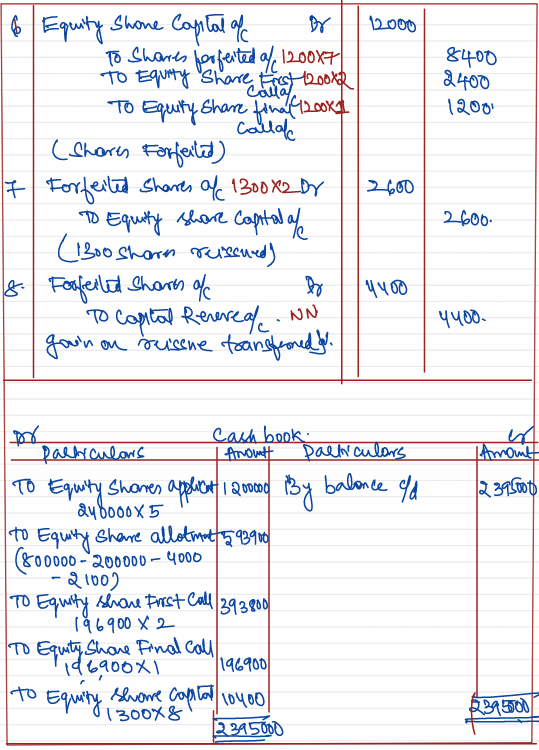 6 Equity Share Capital a/c Dr 12000
To Shares forfeited a/c 1200x7 8400
To Equity Share First Call a/c 1200x2 2400
To Equity Share final Call a/c 1200x1 1200
(Shares Forfeited)
7 Forfeited Shares a/c 1300x2 Dr 2600
To Equity share Capital a/c 2600
(1300 Shares reissued)
8. Forfeited Shares a/c Dr 4400
To Capital Reserve a/c. NN 4400
gain on reissue transferred
Dr Cash book. Cr
Particulars Amount Particulars Amount
To Equity Shares applicat 1200000 By balance c/d 2395000
240000 x 5
To Equity Share allotment 593900
(800000 - 200000 - 4000
- 2100)
To Equity Share First Call 393800
196900 x 2
To Equity Share Final Call
196900x1 196900
To Equity Share Capital 10400
1300x8 2395000
2395000